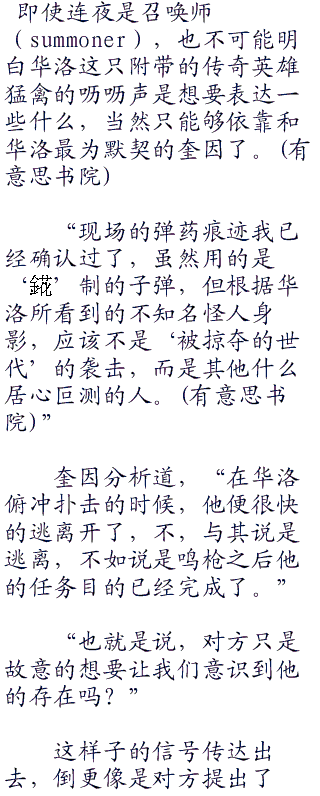 即使连夜是召唤师
（summoner），也不可能明
白华洛这只附带的传奇英雄
猛禽的呖呖声是想要表达一
些什么，当然只能够依靠和
华洛最为默契的奎因了。(有
意思书院)
“现场的弹药痕迹我已
经确认过了，虽然用的是
‘錵’制的子弹，但根据华
洛所看到的不知名怪人身
影，应该不是‘被掠夺的世
代’的袭击，而是其他什么
居心叵测的人。(有意思书
院)”
奎因分析道，“在华洛
俯冲扑击的时候，他便很快
的逃离开了，不，与其说是
逃离，不如说是鸣枪之后他
的任务目的已经完成了。”
“也就是说，对方只是
故意的想要让我们意识到他
的存在吗？”
这样子的信号传达出
去，倒更像是对方提出了